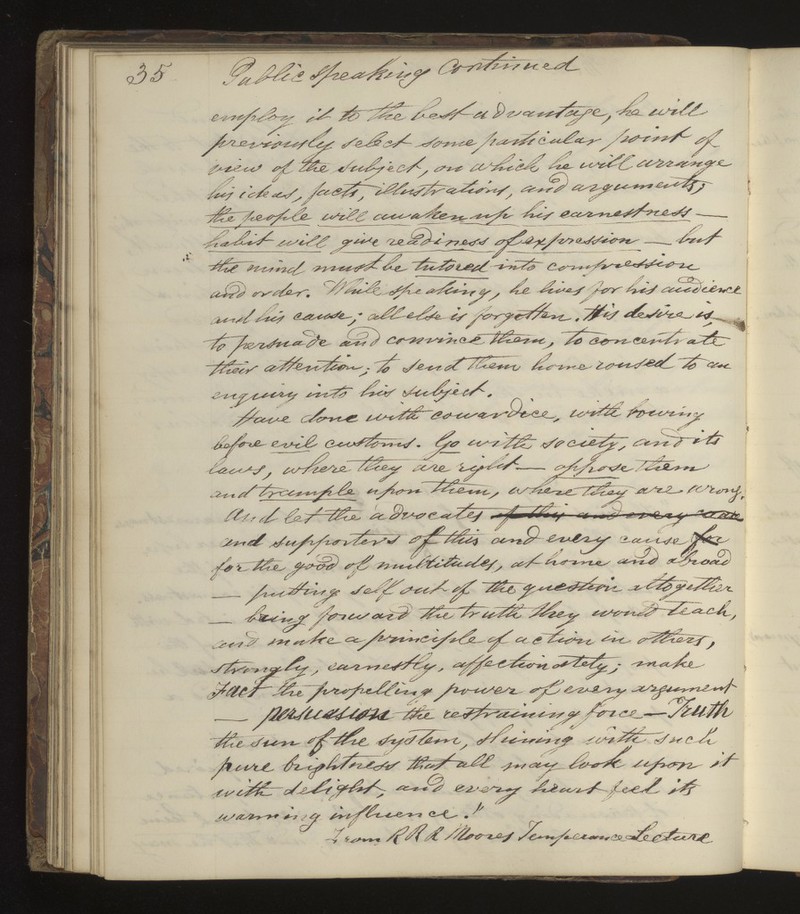 35 Public Speaking Continued
employ it to the best advantage, he will
previously select some particular point of
view of the subject, on which he will arrange
his ideas, facts, illustrations, and arguments;
the people will awaken up his earnestness —
habit will give readiness of expression — but
the mind must be tutored into compression
and order. While speaking, he lives for his audience
and his cause; all else is forgotten. His desire is
to persuade and convince them, to concentrate
their attention; to send them home roused to an
enquiry into his subject.
Have done with cowardice, with bowing
before evil customs. Go with society, and its
laws, where they are right — oppose them
and trample upon them, where they are wrong.
And let the advocates of this and every cause
and supporters of this and every cause for
for the good of multitudes, at home and abroad
— putting self out of the question altogether
— bring forward the truth they would teach,
and make a principle of action in others,
strongly, earnestly, affectionately; make
Fact the propelling power of every argument
— persuasion the restraining force — Truth
the sun of the system, shining with such
pure brightness that all may look upon it
with delight, and every heart feel its
warming influence."
From R R R Moores Temperance Lecture